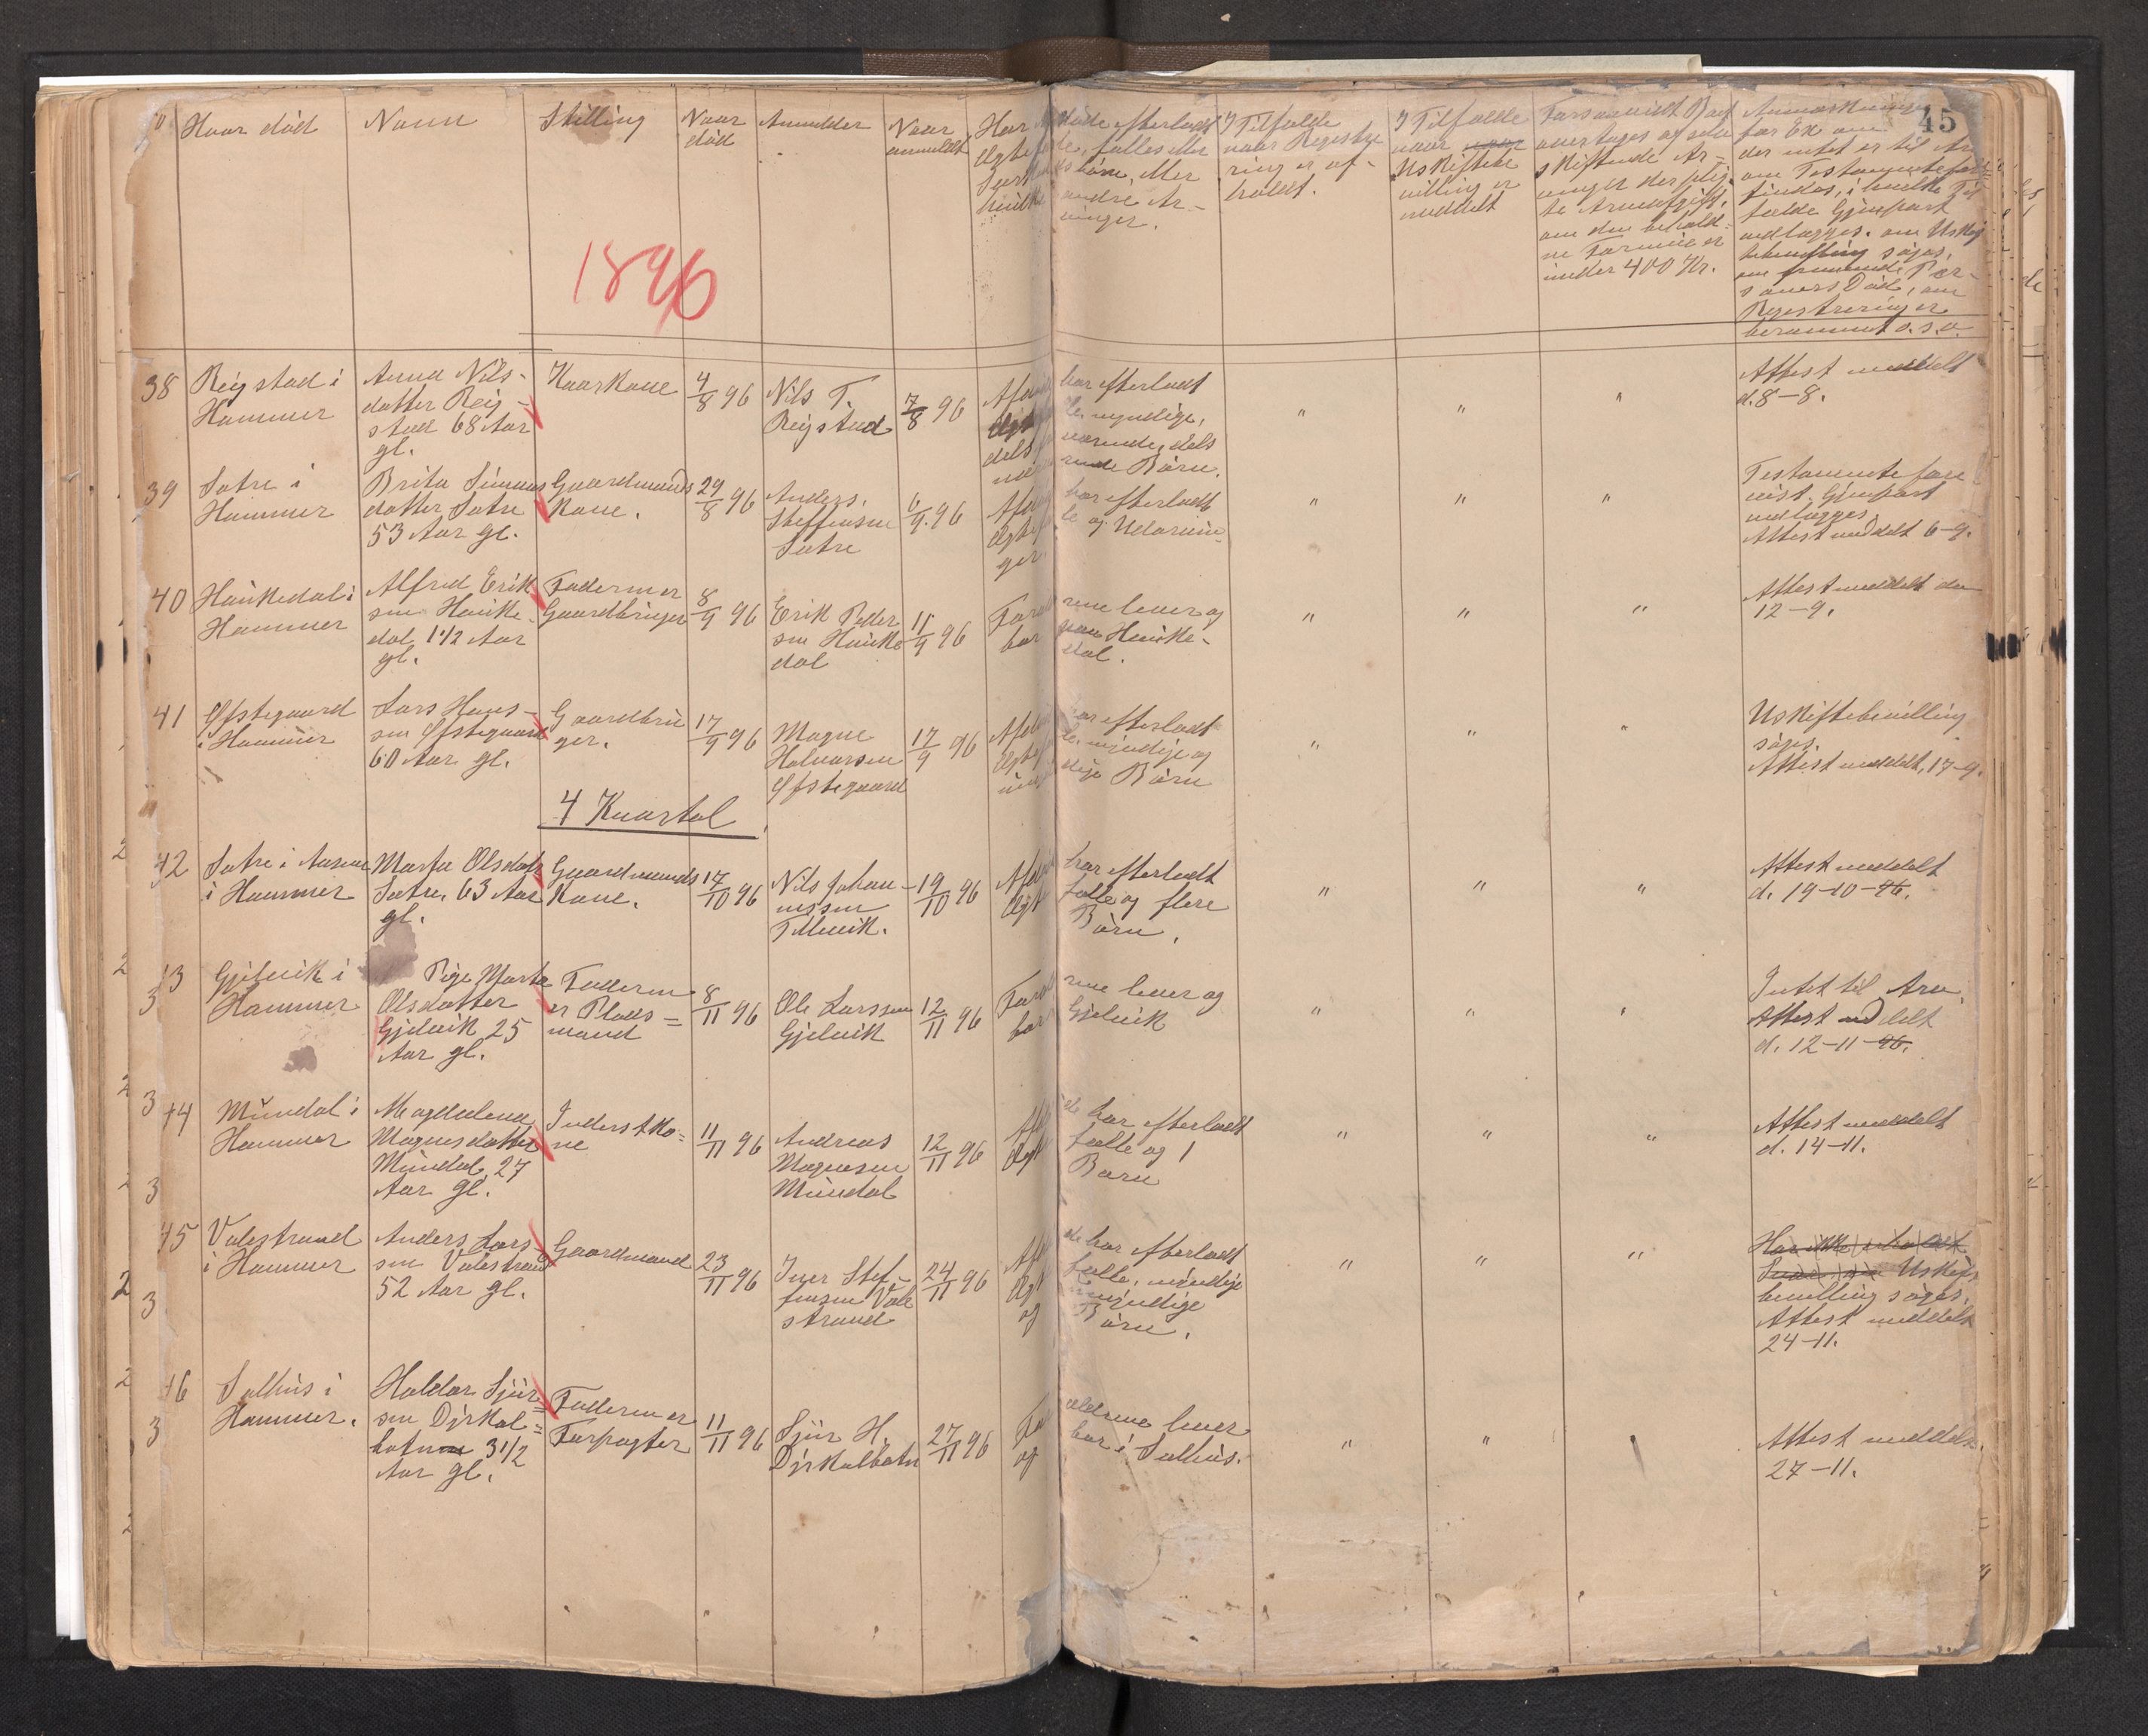 45
Hvor død
Navn
Stilling
Naar
død
Anmelder
Naar
anmeldt
Har
døde efterladt
Ægtefælle, fælles eller
Særkuldsbørn eller
andre Ar-
vinger.
I Tilfælde
naar Registre
ring er af-
holdt.
I Tilfælde
naar
Uskiftebe
villing er
meddelt
Forsaavidt Boet
overtages af selv
skiftende Ar-
vinger
te Arveafgift,
om den behold-
ne Formue er
under 400 Kr.
Anmærkninger
for Ex om
der intet er til Arv
om Testamente
findes, i hvilke Til
fælde Gjenpart
vedlægges, om Uskif
bebevilling søges,
om
soners Død, om
Registrering er
berammet o.s.v.
1896
38
Reigstad i
Hammer
Anna Nils-
datter Reig-
stad 68 Aar
gl.
Kaarkone
4/8 96
Nils T.
Reigstad
7/8 96
har efterladt
myndige,
værende, dels
Børn.
"
"
"
Attest meddelt
d. 8-8.
39
Satre i
Hammer
Brita Simons
datter Satre
53 Aar gl.
Gaardmands
Kone.
29/8 96
Anders
Steffensen
Satre
6/9 96
har efterladt
og Udarvin-
ger.
"
"
"
Testamente fore
vist. Gjenpart
vedlægges
Attest meddelt 6-9.
40
Haukedal i
Hammer
Alfred Erik
sen Hauke-
dal, 1 1/2 Aar
gl.
Faderen er
Gaardbruger
8/9 96
Erik Peder
sen Hauke
dal
11/9 96
Forældrene lever og
bor paa Hauke-
dal.
"
"
"
Attest meddelt den
12-9.
41
Øfstegaard
i Hammer
Lars Hans-
sen Øfstegaard
60 Aar gl.
Gaardbru
ger.
17/9 96
Magne
Halvorsen
Øfstegaard
17/9 96
har efterladt
myndige og
Børn
"
"
"
Uskiftebevilling
søges.
Attest meddelt, 17-9.
4 Kvartal
42
Satre i Aasene
i Hammer
Marta Olsdatr
Satre, 63 Aar
gl.
Gaardmands
Kone.
17/10 96
Nils Johan-
nessen
Tellevik.
19/10 96
har efterladt
Ægtefælle og flere
Børn.
"
"
"
Attest meddelt
d. 19-10-96.
43
Gjelvik i
Hammer
Pige Marta
Olsdatter
Gjelvik 25
Aar gl.
Faderen
er Plads=
mand
8/11 96
Ole Larssen
Gjelvik
12/11 96
Forældrene lever og
bor Gjelvik
"
"
"
Intet til Arv.
Attest meddelt
d. 12-11-96.
44
Mundal i
Hammer
Magdalena
Magnesdatter
Mundal, 27
Aar gl.
Inderstko=
ne
11/11 96
Andreas
Magnesen
Mundal
12/11 96
har efterladt
Ægtefælle og 1
Barn
"
"
"
Attest meddelt
d. 14-11.
45
Valestrand
i Hammer
Anders Lars-
sen Valestrand
52 Aar gl.
Gaardmand
23/11 96
Iver Stef-
fensen Vale
strand
24/11 96
har efterladt
Ægtefælle, myndige
og umyndige
Børn.
"
"
"
Uskifte
bevilling søges.
Attest meddelt
24-11.
46
Salhus i
Hammer.
Haldor Sjur=
sen Dyrkol=
botn 3 1/2
Aar gl.
Faderen er
Forpagter
11/11 96
Sjur H.
Dyrkolbotn
27/11 96
Forældrene lever
og bor i Salhus.
"
"
Attest meddelt
27-11.